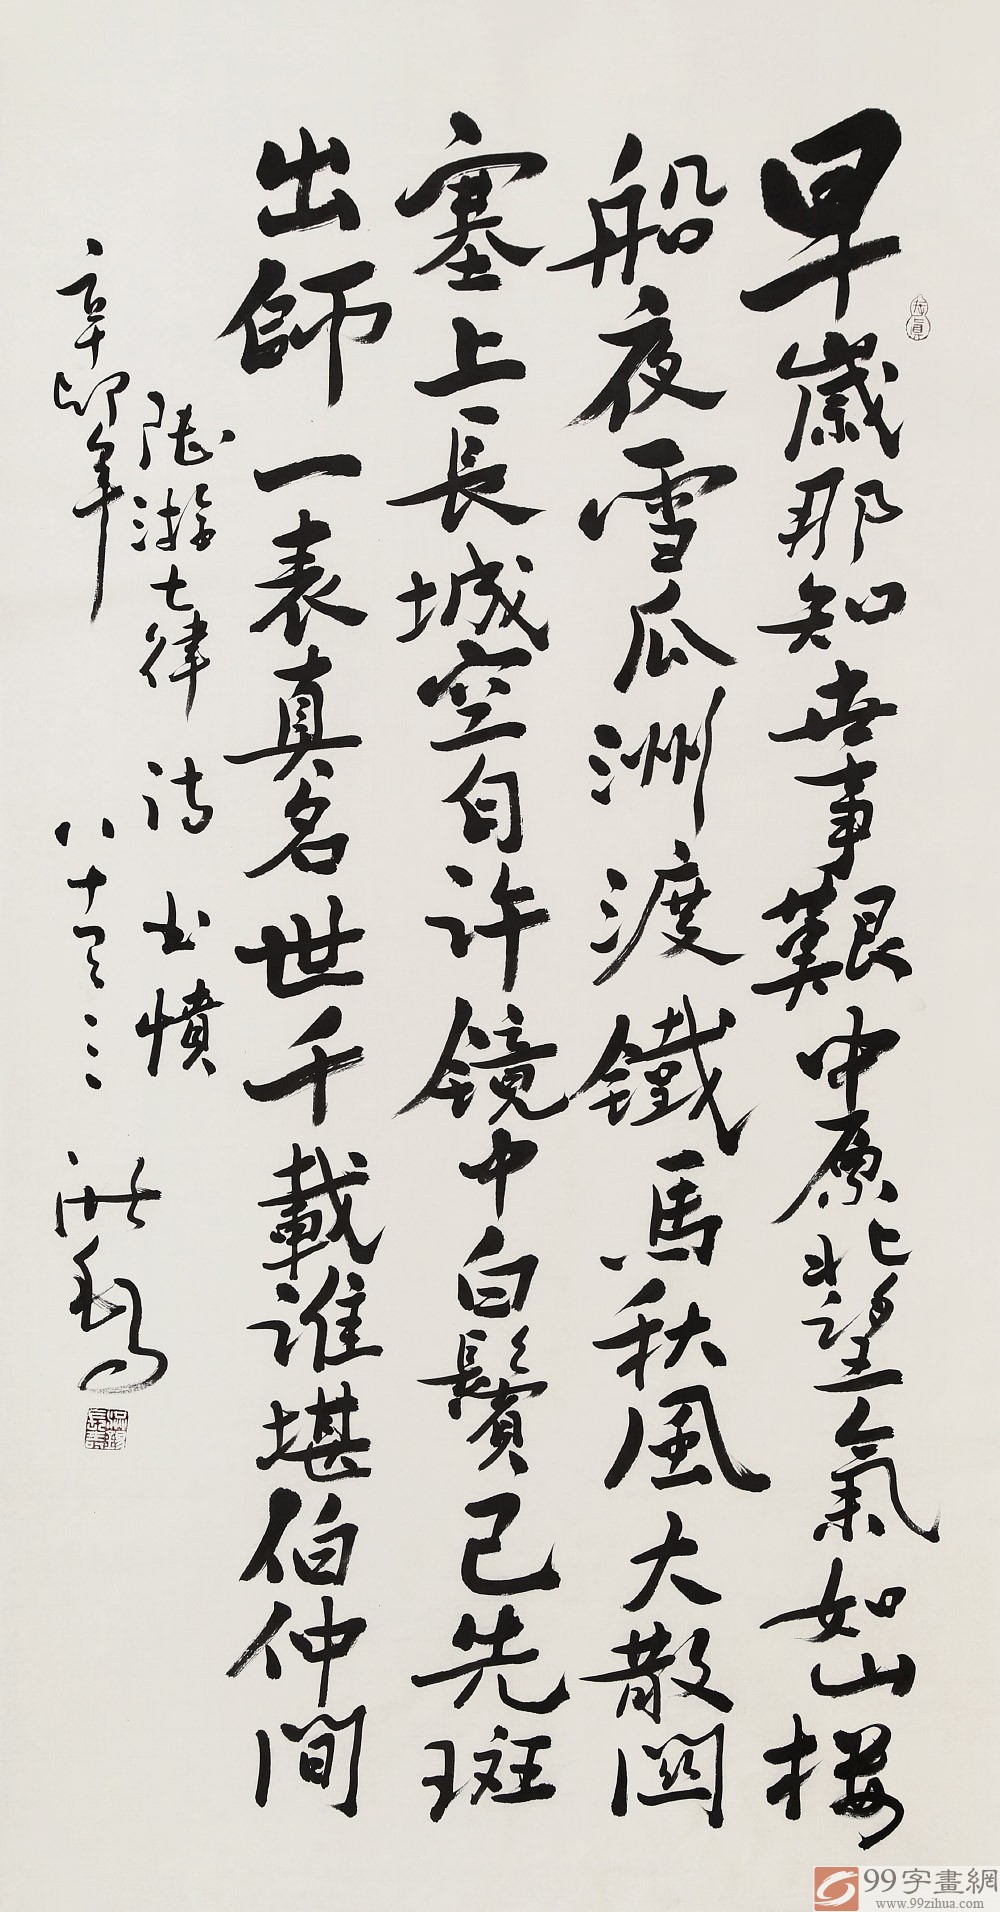 早歲那知世事艱中原北望氣如山樓
船夜雪瓜洲渡鐵馬秋風大散關
塞上長城空自许鏡中白鬢已先斑
出師一表真名世千載誰堪伯仲間
陆游七律诗书憤
辛卯年八十又三
99字畫網
www.99zihua.com